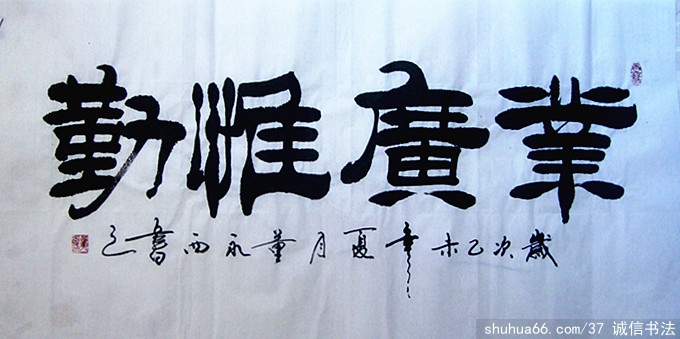 業廣惟勤
歲次乙未年夏月董永西書之
shuhua66.com/37 诚信书法